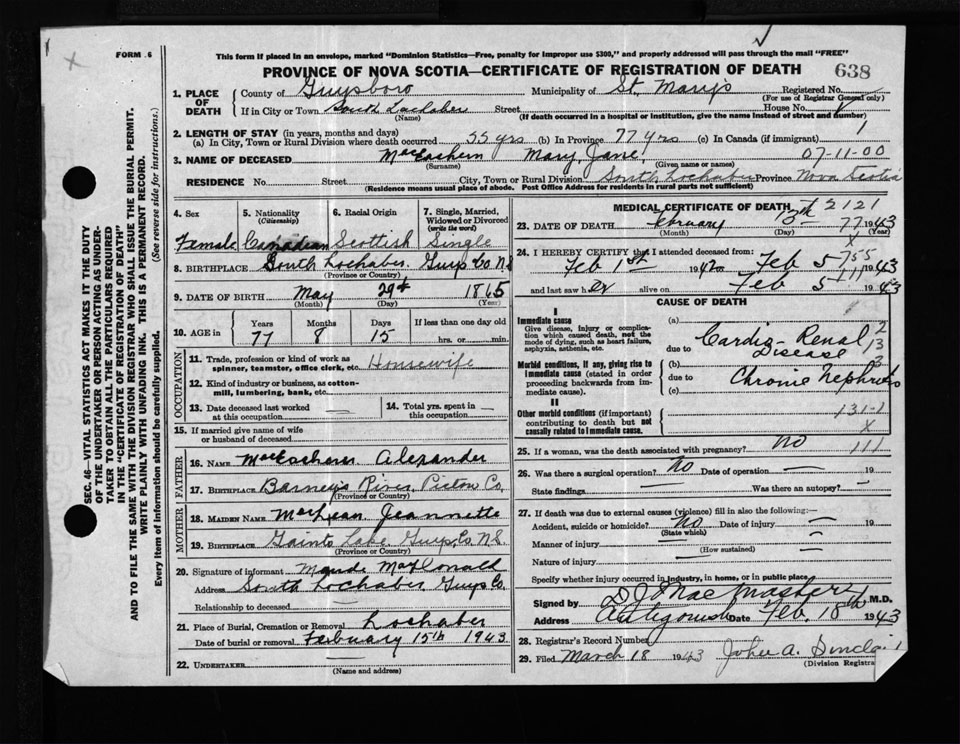 FORM 6
This form if placed in an envelope, marked "Dominion Statistics—Free, penalty for improper use $300," and properly addressed will pass through the mail "FREE"
PROVINCE OF NOVA SCOTIA—CERTIFICATE OF REGISTRATION OF DEATH 638
1. PLACE OF DEATH
County of Guysboro Municipality of St. Mary's Registered No.
(For use of Registrar General only)
If in City or Town South Lochaber Street House No.
(Name) (If death occurred in a hospital or institution, give the name instead of street and number)
2. LENGTH OF STAY (in years, months and days)
(a) In City, Town or Rural Division where death occurred 55 yrs (b) In Province 77 yrs (c) In Canada (if immigrant)
3. NAME OF DECEASED MacEachern Mary Jane 07-11-00
(Surname) (Given name or names)
RESIDENCE No. Street City, Town or Rural Division South Lochaber Province Nova Scotia
(Residence means usual place of abode. Post Office Address for residents in rural parts not sufficient)
4. Sex 5. Nationality (Citizenship) 6. Racial Origin 7. Single, Married, Widowed or Divorced (write the word)
Female Canadian Scottish Single
8. BIRTHPLACE South Lochaber, Guys Co. N.S.
(Province or Country)
9. DATE OF BIRTH May 29th 1865
(Month) (Day) (Year)
10. AGE in Years Months Days If less than one day old
77 8 15 hrs. or min.
OCCUPATION
11. Trade, profession or kind of work as spinner, teamster, office clerk, etc. Housewife
12. Kind of industry or business, as cotton-mill, lumbering, bank, etc.
13. Date deceased last worked at this occupation — 14. Total yrs. spent in this occupation —
15. If married give name of wife or husband of deceased
FATHER
16. NAME Alexander
17. BIRTHPLACE Barney's River, Pictou Co.
(Province or Country)
MOTHER
18. MAIDEN NAME MacLean Jeannette
19. BIRTHPLACE Lake, Guys. Co. N.S.
(Province or Country)
20. Signature of informant MacDonald
Address South Lochaber, Guys Co.
Relationship to deceased
21. Place of Burial, Cremation or Removal Lochaber
Date of burial or removal February 15th 1943
22. UNDERTAKER
(Name and address)
MEDICAL CERTIFICATE OF DEATH 2121
23. DATE OF DEATH February 13th 1943
(Month) (Day) (Year)
24. I HEREBY CERTIFY that I attended deceased from:
Feb 1st 19 to Feb 5 1943
and last saw her alive on Feb 5 1943
CAUSE OF DEATH
I
Immediate cause
Give disease, injury or complication which caused death, not the mode of dying, such as heart failure, asphyxia, asthenia, etc.
(a) Cardio-Renal Disease
due to
Morbid conditions, if any, giving rise to immediate cause (stated in order proceeding backwards from immediate cause).
(b)
due to Chronic Nephritis
(c)
II
Other morbid conditions (if important) contributing to death but not causally related to immediate cause.
131-1
X
25. If a woman, was the death associated with pregnancy? No 111
26. Was there a surgical operation? No Date of operation — 19
State findings — Was there an autopsy? —
27. If death was due to external causes (violence) fill in also the following:—
Accident, suicide or homicide? No Date of injury — 19
(State which)
Manner of injury
(How sustained)
Nature of injury
Specify whether injury occurred in industry, in home, or in public place.
Signed by D J MacMaster M.D.
Address Antigonish Date Feb. 18th 1943
28. Registrar's Record Number
29. Filed March 18 1943 John A. Sinclair
(Division Registrar
SEC. 46—VITAL STATISTICS ACT MAKES IT THE DUTY
OF THE UNDERTAKER OR PERSON ACTING AS UNDER-
TAKER TO OBTAIN ALL THE PARTICULARS REQUIRED
IN THE "CERTIFICATE OF REGISTRATION OF DEATH"
AND TO FILE THE SAME WITH THE DIVISION REGISTRAR WHO SHALL ISSUE THE BURIAL PERMIT.
WRITE PLAINLY WITH UNFADING INK. THIS IS A PERMANENT RECORD.
Every item of information should be carefully supplied. (See reverse side for instructions.)